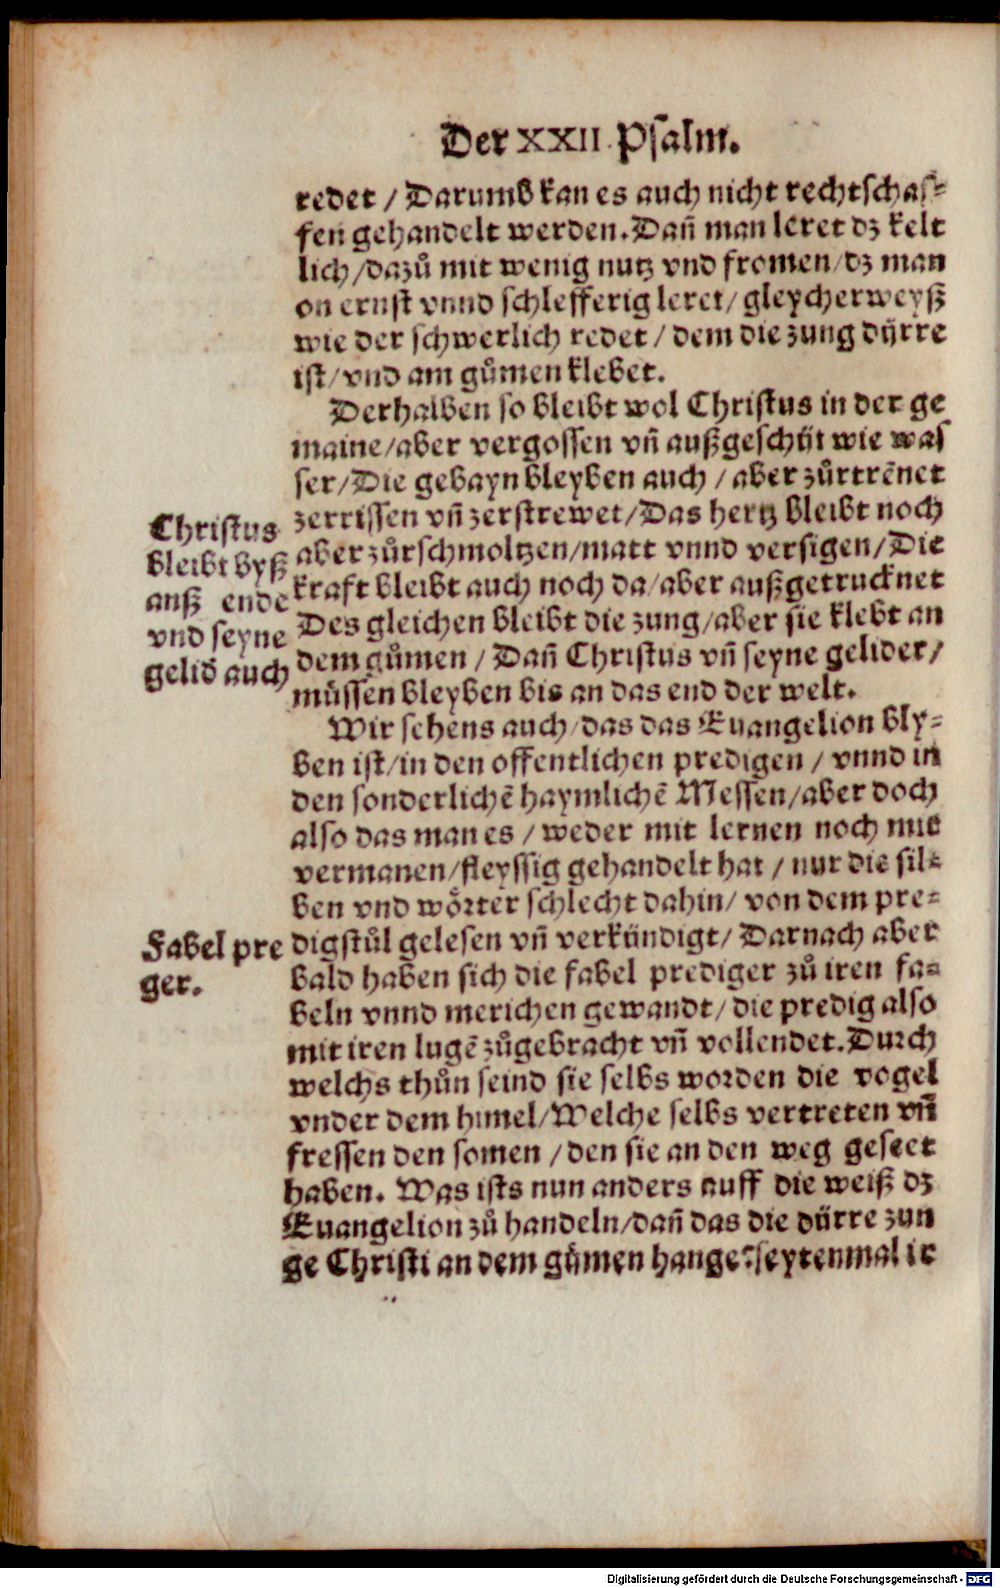 Der XXII. Psalm.
redet / Darumb kan es auch nicht rechtschaf=
fen gehandelt werden. Dañ man leret dz kelt
lich / dazů mit wenig nutz vnd fromen / dz man
on ernst vnnd schlefferig leret / gleycherweyß
wie der schwerlich redet / dem die zung dürre
ist / vnd am gůmen klebet.
Derhalben so bleibt wol Christus in der ge
maine / aber vergossen vñ außgeschüt wie was
ser / Die gebayn bleyben auch / aber zůrtrẽnet
zerrissen vñ zerstrewet / Das hertz bleibt noch
aber zůrschmoltzen / matt vnnd versigen / Die
kraft bleibt auch noch da / aber außgetrucknet
Des gleichen bleibt die zung / aber sie klebt an
dem gůmen / Dañ Christus vñ seyne gelider /
müssen bleyben bis an das end der welt.
Christus
bleibt byß
anß ende
vnd seyne
gelid̃ auch
Wir sehens auch / das das Euangelion bly=
ben ist / in den offentlichen predigen / vnnd in
den sonderlichẽ haymlichẽ Messen / aber doch
also das man es / weder mit lernen noch mit
vermanen / fleyssig gehandelt hat / nur die sil=
ben vnd wörter schlecht dahin / von dem pre=
digstůl gelesen vñ verkündigt / Darnach aber
bald haben sich die fabel prediger zů iren fa=
beln vnnd merichen gewandt / die predig also
mit iren lugẽ zůgebracht vñ vollendet. Durch
welchs thůn seind sie selbs worden die vogel
vnder dem himel / Welche selbs vertreten vñ
fressen den somen / den sie an den weg geseet
haben. Was ists nun anders auff die weiß dz
Euangelion zů handeln / dañ das die dürre zun
ge Christi an dem gůmen hange? seytenmal ir
Fabel pre
ger.
Digitalisierung gefördert durch die Deutsche Forschungsgemeinschaft - DFG